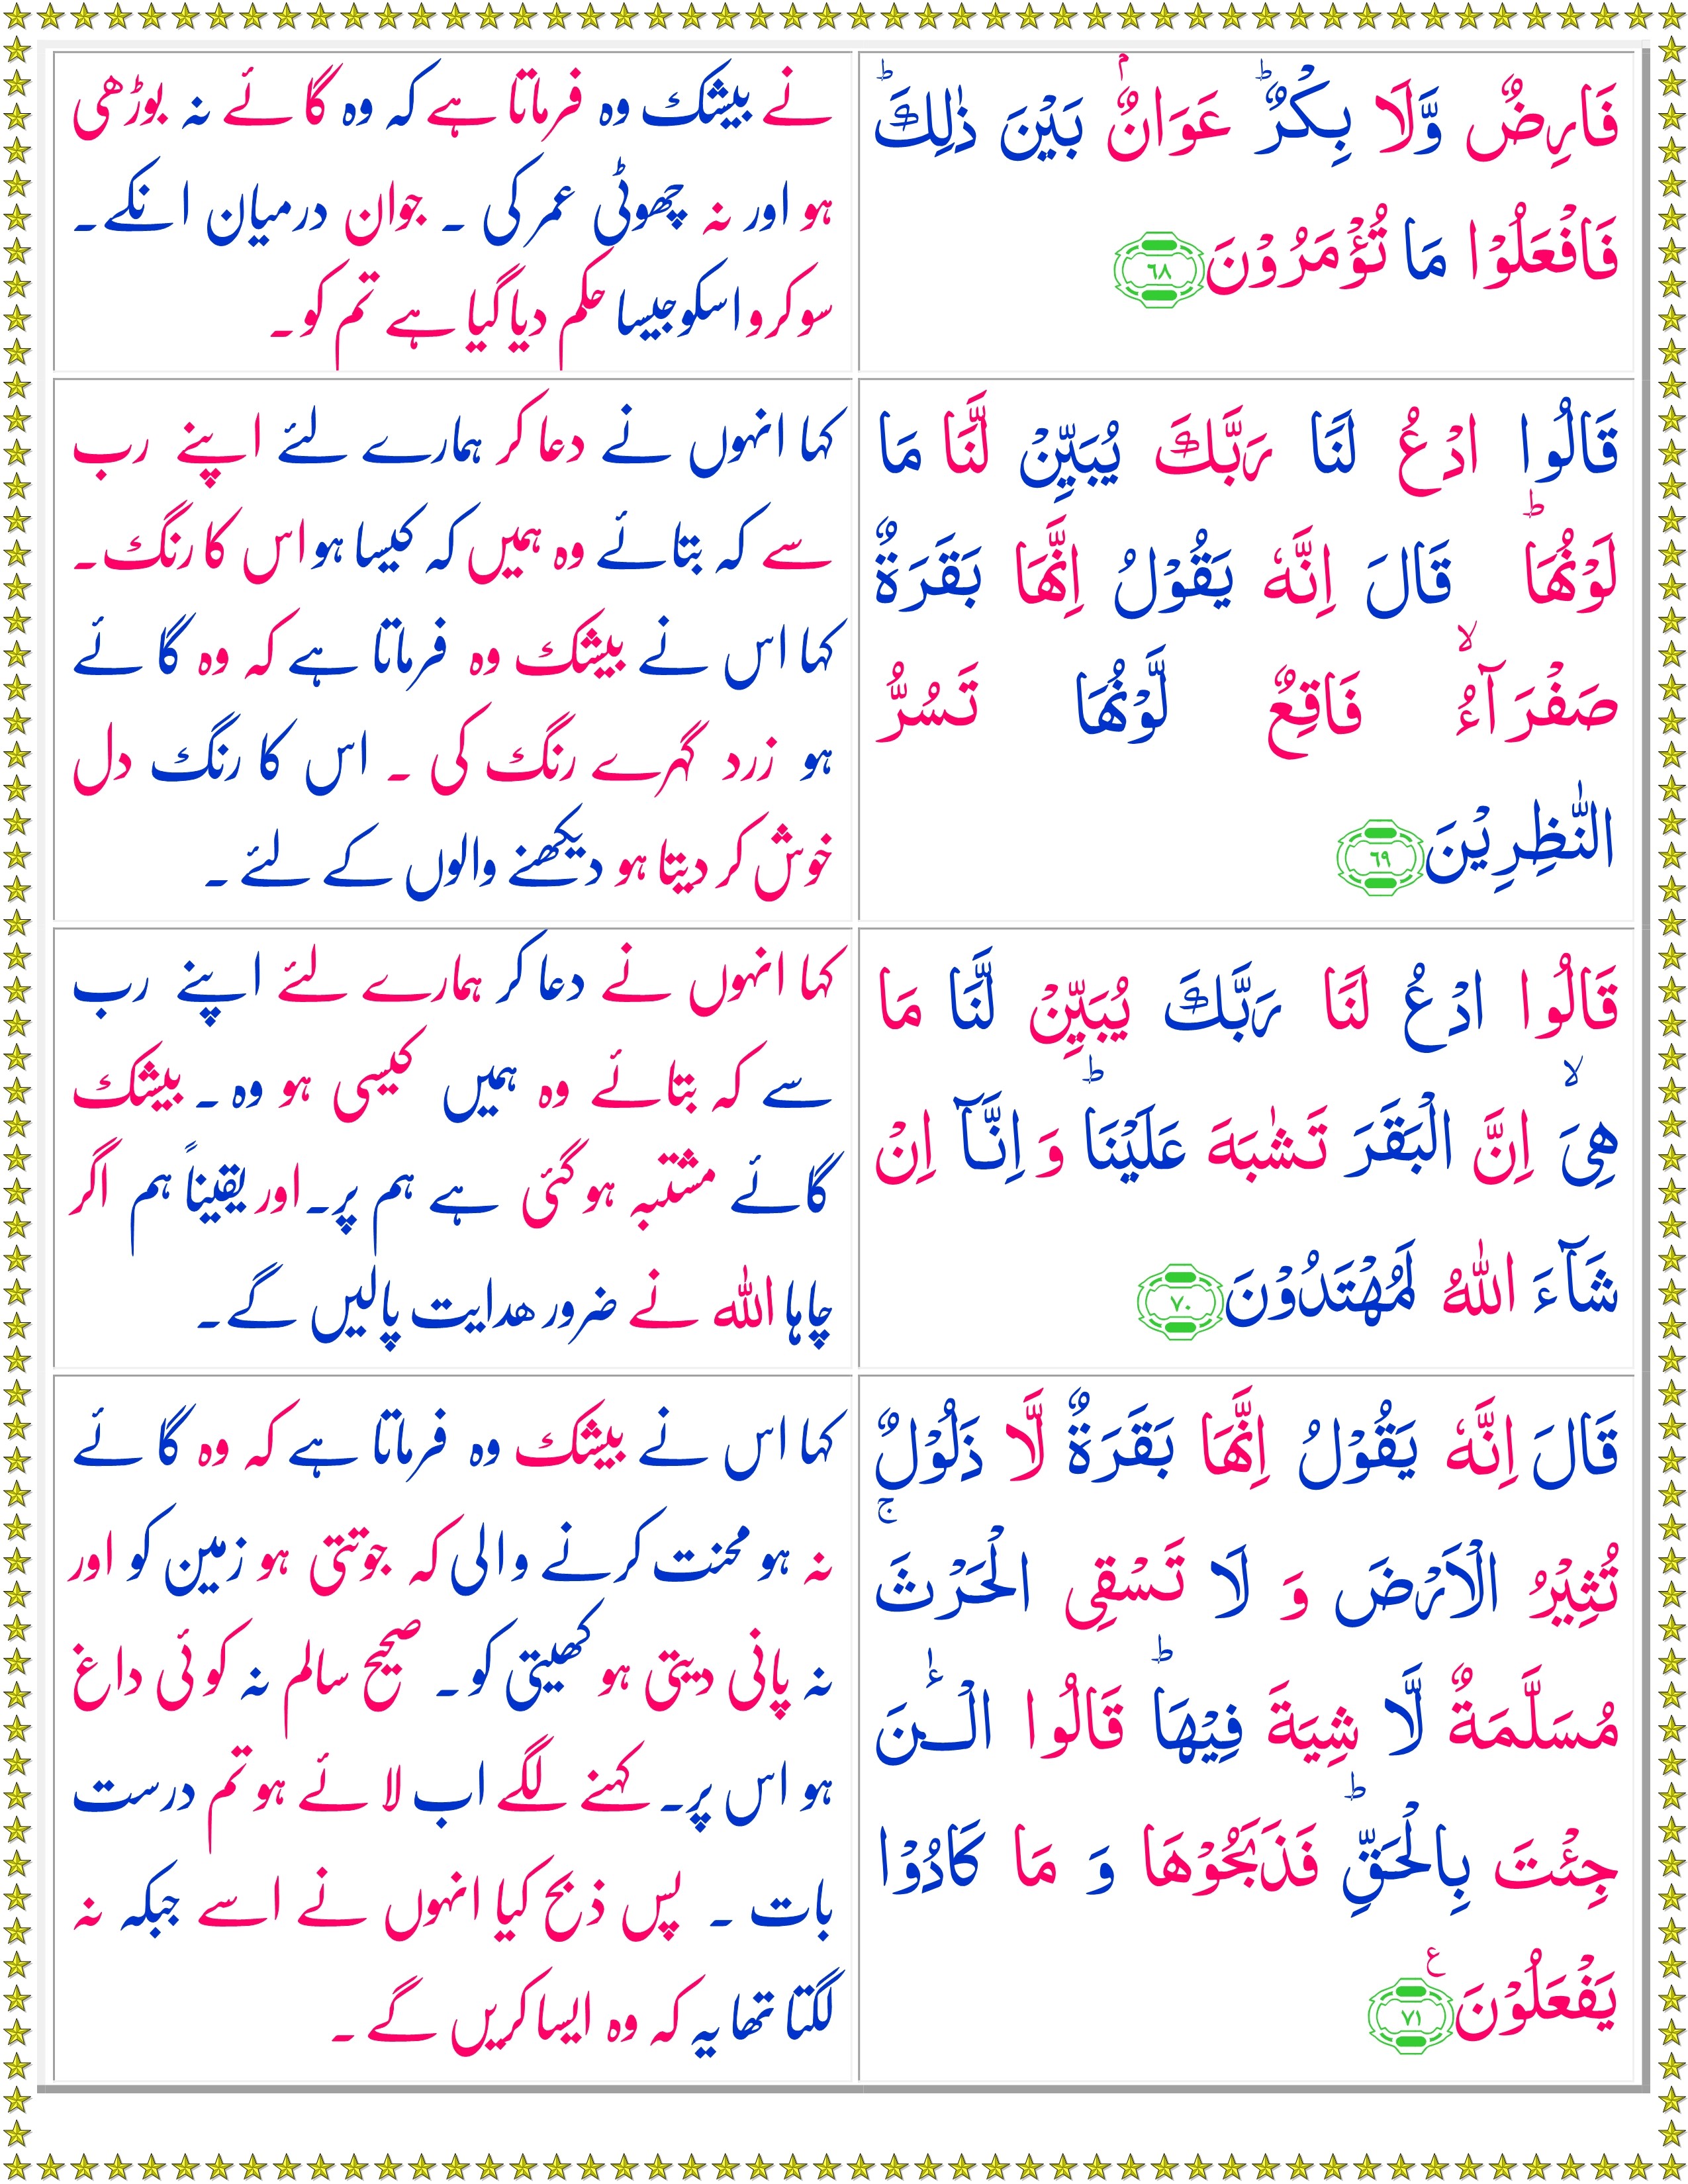 فَارِضٌ وَّلَا بِكْرٌ ؕ عَوَانٌۢ بَيْنَ ذٰلِكَ ؕ
فَافْعَلُوْا مَا تُؤْمَرُوْنَ ﴿۶۸﴾
نے بیشک وہ فرماتا ہے کہ وہ گائے نہ بوڑھی
ہو اور نہ چھوٹی عمر کی ۔ جوان درمیان انکے۔
سو کرو اسکو جیسا حکم دیا گیا ہے تم کو۔
قَالُوا ادْعُ لَنَا رَبَّكَ يُبَيِّنْ لَّنَا مَا
لَوْنُهَا ؕ قَالَ اِنَّهٗ يَقُوْلُ اِنَّهَا بَقَرَةٌ
صَفْرَآءُ ۙ فَاقِعٌ لَّوْنُهَا تَسُرُّ
النّٰظِرِيْنَ ﴿۶۹﴾
کہا انہوں نے دعا کر ہمارے لئے اپنے رب
سے کہ بتائے وہ ہمیں کہ کیسا ہو اس کا رنگ۔
کہا اس نے بیشک وہ فرماتا ہے کہ وہ گائے
ہو زرد گہرے رنگ کی ۔ اس کا رنگ دل
خوش کر دیتا ہو دیکھنے والوں کے لئے ۔
قَالُوا ادْعُ لَنَا رَبَّكَ يُبَيِّنْ لَّنَا مَا
هِىَ ۙ اِنَّ الْبَقَرَ تَشٰبَهَ عَلَيْنَا ؕ وَ اِنَّآ اِنْ
شَآءَ اللّٰهُ لَمُهْتَدُوْنَ ﴿۷۰﴾
کہا انہوں نے دعا کر ہمارے لئے اپنے رب
سے کہ بتائے وہ ہمیں کیسی ہو وہ ۔ بیشک
گائے مشتبہ ہو گئی ہے ہم پر۔ اور یقیناً ہم اگر
چاہا اللہ نے ضرور ھدایت پا لیں گے۔
قَالَ اِنَّهٗ يَقُوْلُ اِنَّهَا بَقَرَةٌ لَّا ذَلُوْلٌ
تُثِيْرُ الْاَرْضَ وَ لَا تَسْقِى الْحَرْثَ ۚ
مُسَلَّمَةٌ لَّا شِيَةَ فِيْهَا ؕ قَالُوا الْـٰٔنَ
جِئْتَ بِالْحَقِّ ؕ فَذَبَحُوْهَا وَ مَا كَادُوْا
يَفْعَلُوْنَ ﴿۷۱﴾ ع
کہا اس نے بیشک وہ فرماتا ہے کہ وہ گائے
نہ ہو محنت کرنے والی کہ جوتتی ہو زمین کو اور
نہ پانی دیتی ہو کھیتی کو۔ صحیح سالم نہ کوئی داغ
ہو اس پر۔ کہنے لگے اب لائے ہو تم درست
بات ۔ پس ذبح کیا انہوں نے اسے جبکہ نہ
لگتا تھا یہ کہ وہ ایسا کریں گے ۔